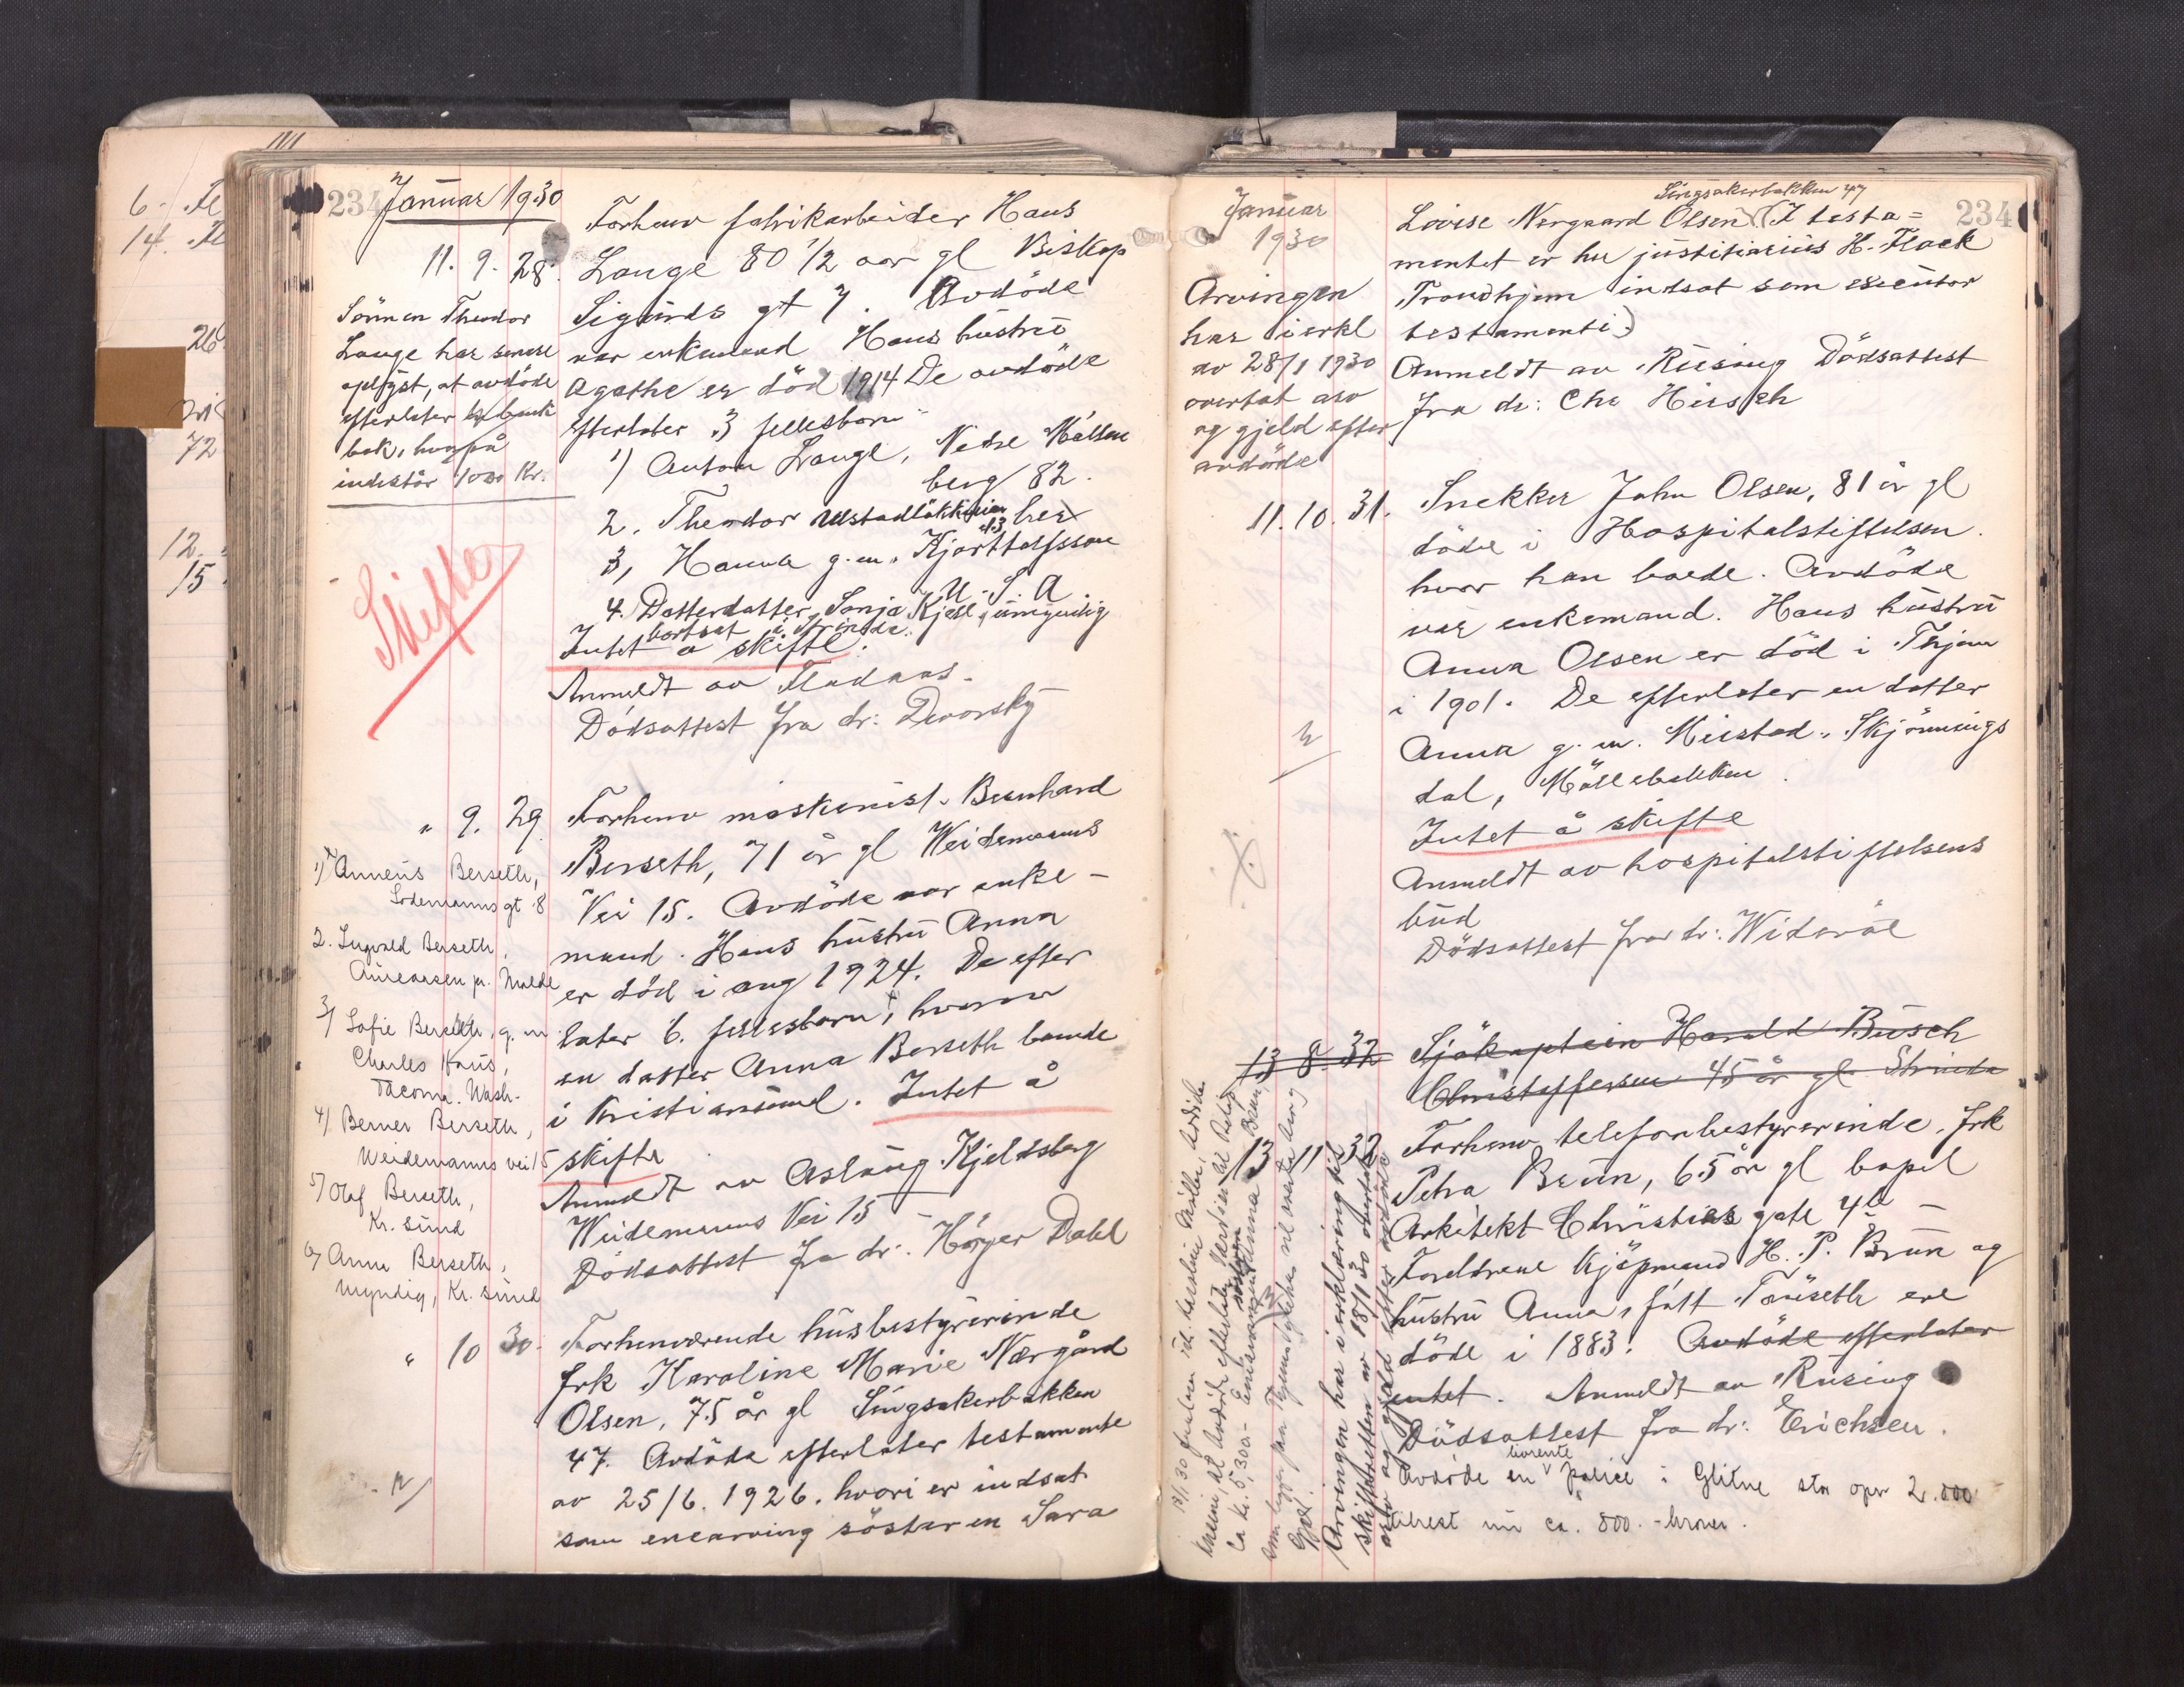 6
14.
26
72
12.
15
234 Januar 1930
11. 9. 28.
Forhenv fabrikarbeider Hans
Lange 80 1/2 aar gl Biskop
Sigurds gt 7. Avdöde
var enkemand Hans hustru
Agathe er död 1914 De avdöde
efterlater 3 fellesbarn
1) Anton Lange, Nedre Möllen
berg 82.
2. Theodor Ulstadlökkvein her
43
3, Hanna g.m. Kjarttalfsson
U. S. A
4. Datterdatter, Sonja Kjell, umyndig
bortsat i Strinda.
Intet å skifte.
Anmeldt av Fladaas.
Dödsattest fra dr: Devorsky
Sönnen Theodor
Lange har senere
oplyst, at avdöde
efterlater bank
bok, hvorpå
indestår 1000 Kr.
Skifte
" 9. 29.
Forhenv maskinist Bernhard
Berseth, 71 år gl Weidemanns
Vei 15. Avdöde var enke-
mand. Hans hustru Anna
er död i aug 1924. De efter
later 6. fellesbarn, hvorav
en datter Anna Berseth boende
i Kristiansund. Intet å
skifte
Anmeldt av Aslaug Kjeldsberg
Weidemanns Vei 15 -
Dödsattest fra dr: Höyer Dahl
1) Anneus Berseth,
Lodemanns gt 8
2. Ingvald Berseth,
Aureosen pr. Molde
3) Sofie Berseth, g. m
Charles Haus,
Tacoma. Wash.
4) Berner Berseth,
Weidemanns vei 15
5) Olaf Berseth,
Kr. sund
6) Anna Berseth,
myndig, Kr. sund
" 10 30.
Forhenværende husbestyrerinde
frk Karoline Marie Nærgård
Olsen, 75 år gl Singsakerbakken
47. Avdöde efterlater testamente
av 25/6. 1926. hvori er indsat
som enearving söster en Sara
Januar
1930
234
Singsakerbakken 47
Lovise Nergaard Olsen (I testa=
mentet er hr justitiarius H. Flock
Trondhjem indsat som executor
testamenti)
Anmeldt av Rüsing Dödsattest
fra dr: Chr Hirsch
Arvingen
har i erkl
av 28/1 1930
overtat arv
og gjeld efter
avdöde
11. 10. 31.
Snekker John Olsen, 81 år gl
döde i Hospitalstiftelsen.
hvor han boede. Avdöde
var enkemand. Hans hustru
Anna Olsen er död i Thjem
i 1901. De efterlater en datter
Anna g. m. Meistad, Skjönnings
dal, Möllebakken.
Intet å skifte
Anmeldt av hospitalstiftelsens
bud
Dödsattest fra dr: Wideröe
13 8. 32
Sjökaptein Harald Busch
Christoffersen 45 år gl Strinda
13 11 32
Forhenv telefonbestyrerinde, frk
Petra Brun, 65 år gl bopel
Arkitekt Christies gate 4b -
Foreldrene Kjöpmand H. P. Brun og
hustru Anna, född Tauseth ere
döde i 1883. Avdöde efterlater
intet. Anmeldt av Rüsing
Dödsattest fra dr: Erichsen.
livrente
Avdöde en police i Glitne stor opr 2.000
tilrest nu ca. 800.- kroner.
Arvingen har i erklæring til
skifteretten av 18/1 30 overtat
arv og gjeld efter avdöde